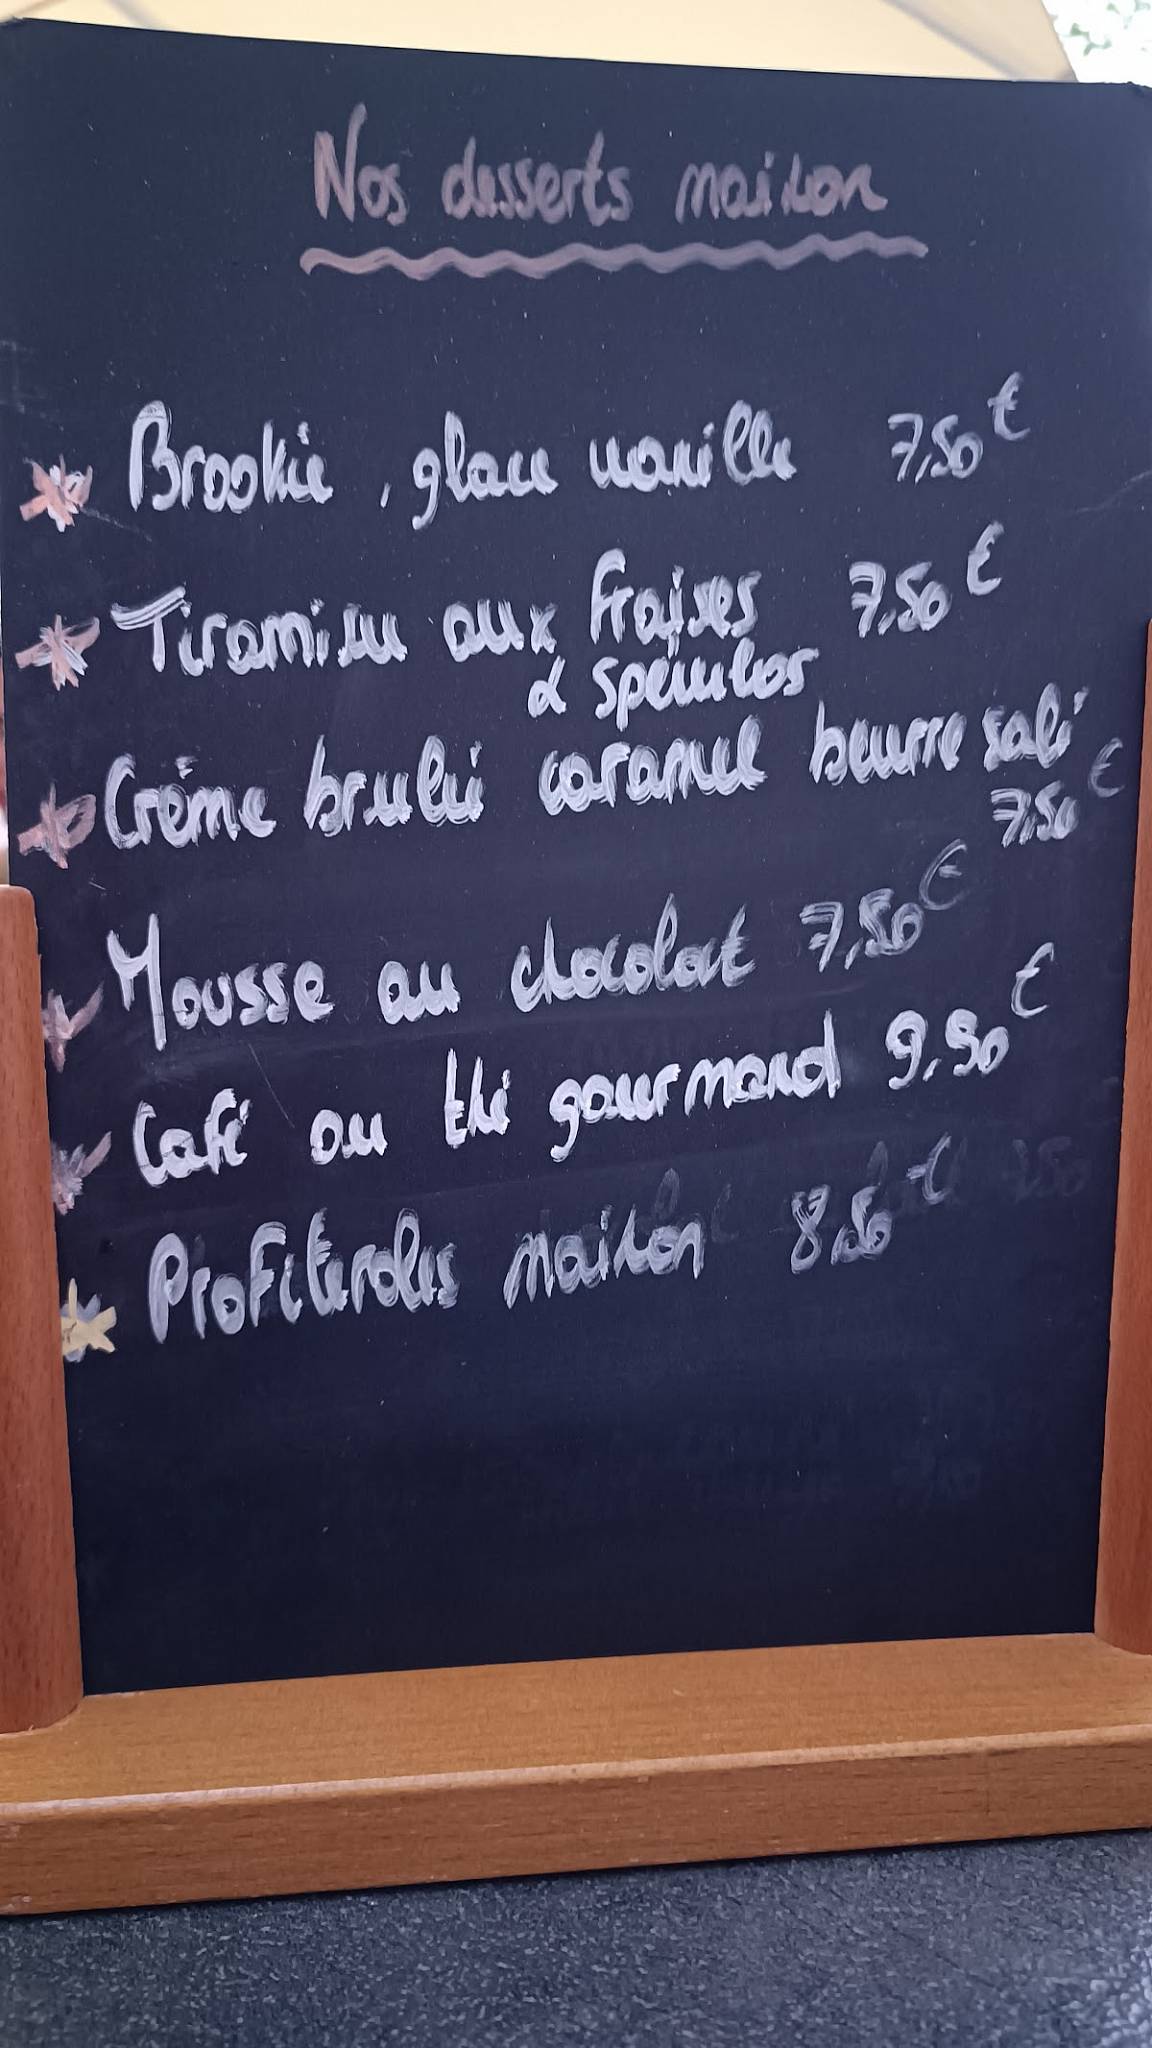 Nos desserts maison
Brookie, glace vanille 7,50€
Tiramisu aux fraises 7,50€
& spéculos
Crème brulée caramel beurre salé
7,50€
Mousse au chocolat 7,50€
Café ou thé gourmand 9,50€
Profiteroles maison 8,50€